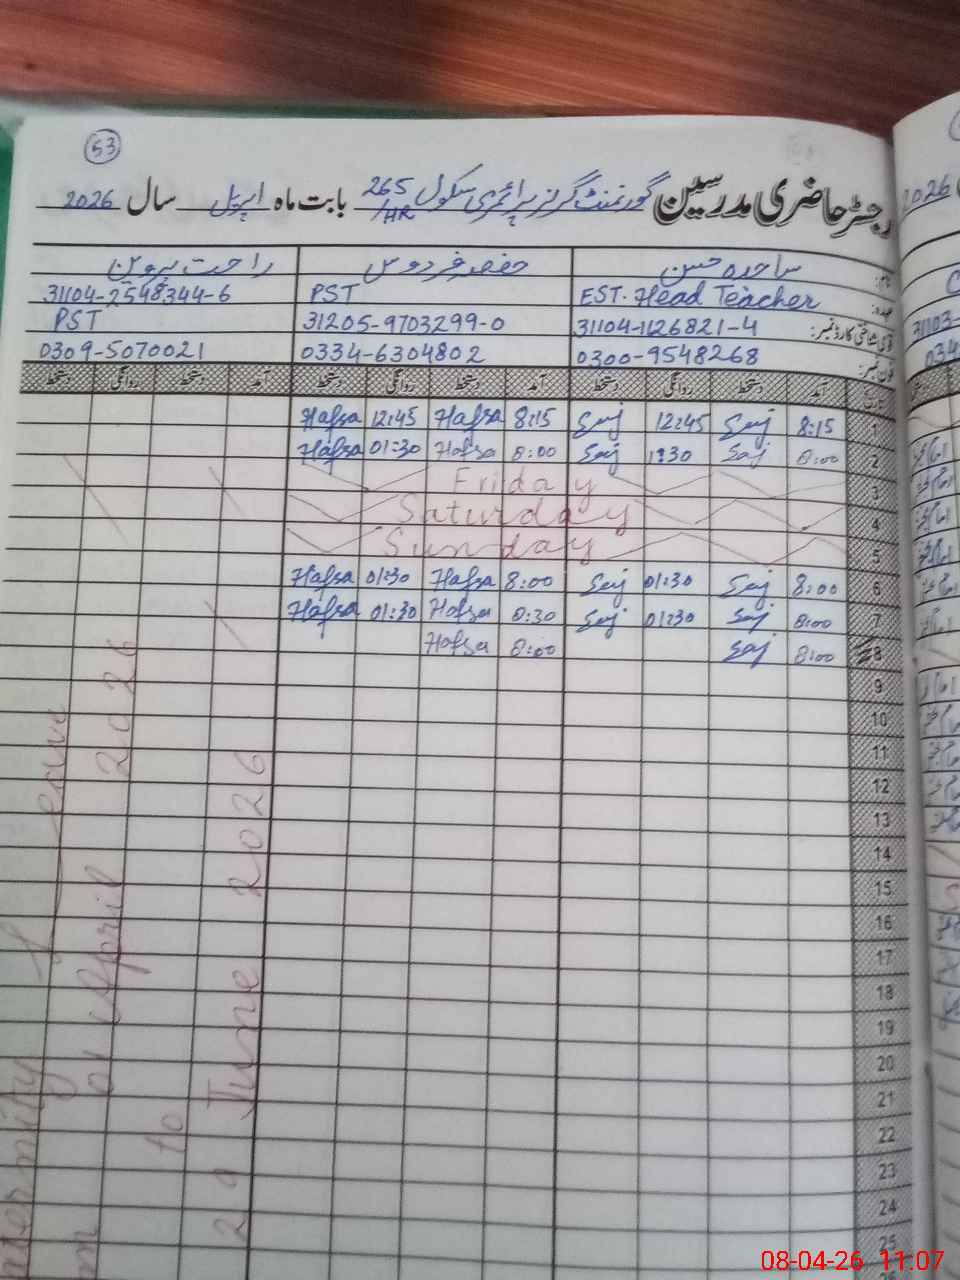 53
رجسٹر حاضری مدرسین گورنمنٹ گرلز پرائمری سکول 265/HR بابت ماہ اپریل سال 2026
نام: ساجدہ حسن حفصہ فردوس راحت پروین
عہدہ: EST. Head Teacher PST 31104-2548344-6
قومی شناختی کارڈ نمبر: 31104-1126821-4 31205-9703299-0 PST
فون نمبر: 0300-9548268 0334-6304802 0309-5070021
آمد دستخط روانگی دستخط آمد دستخط روانگی دستخط آمد دستخط روانگی دستخط
Hafsa 12:45 Hafsa 8:15 Saj 12:45 Saj 8:15 1
Hafsa 01:30 Hafsa 8:00 Saj 1:30 Saj 8:00 2
Friday 3
Saturday 4
Sunday 5
Hafsa 01:30 Hafsa 8:00 Saj 01:30 Saj 8:00 6
Hafsa 01:30 Hafsa 8:30 Saj 01:30 Saj 8:00 7
Hafsa 8:00 Saj 8:00 8
9
10
11
12
13
14
15
16
17
18
19
20
21
22
23
24
25
Leave
01 April 2026
to
20 June 2026
2026
08-04-26 11:07